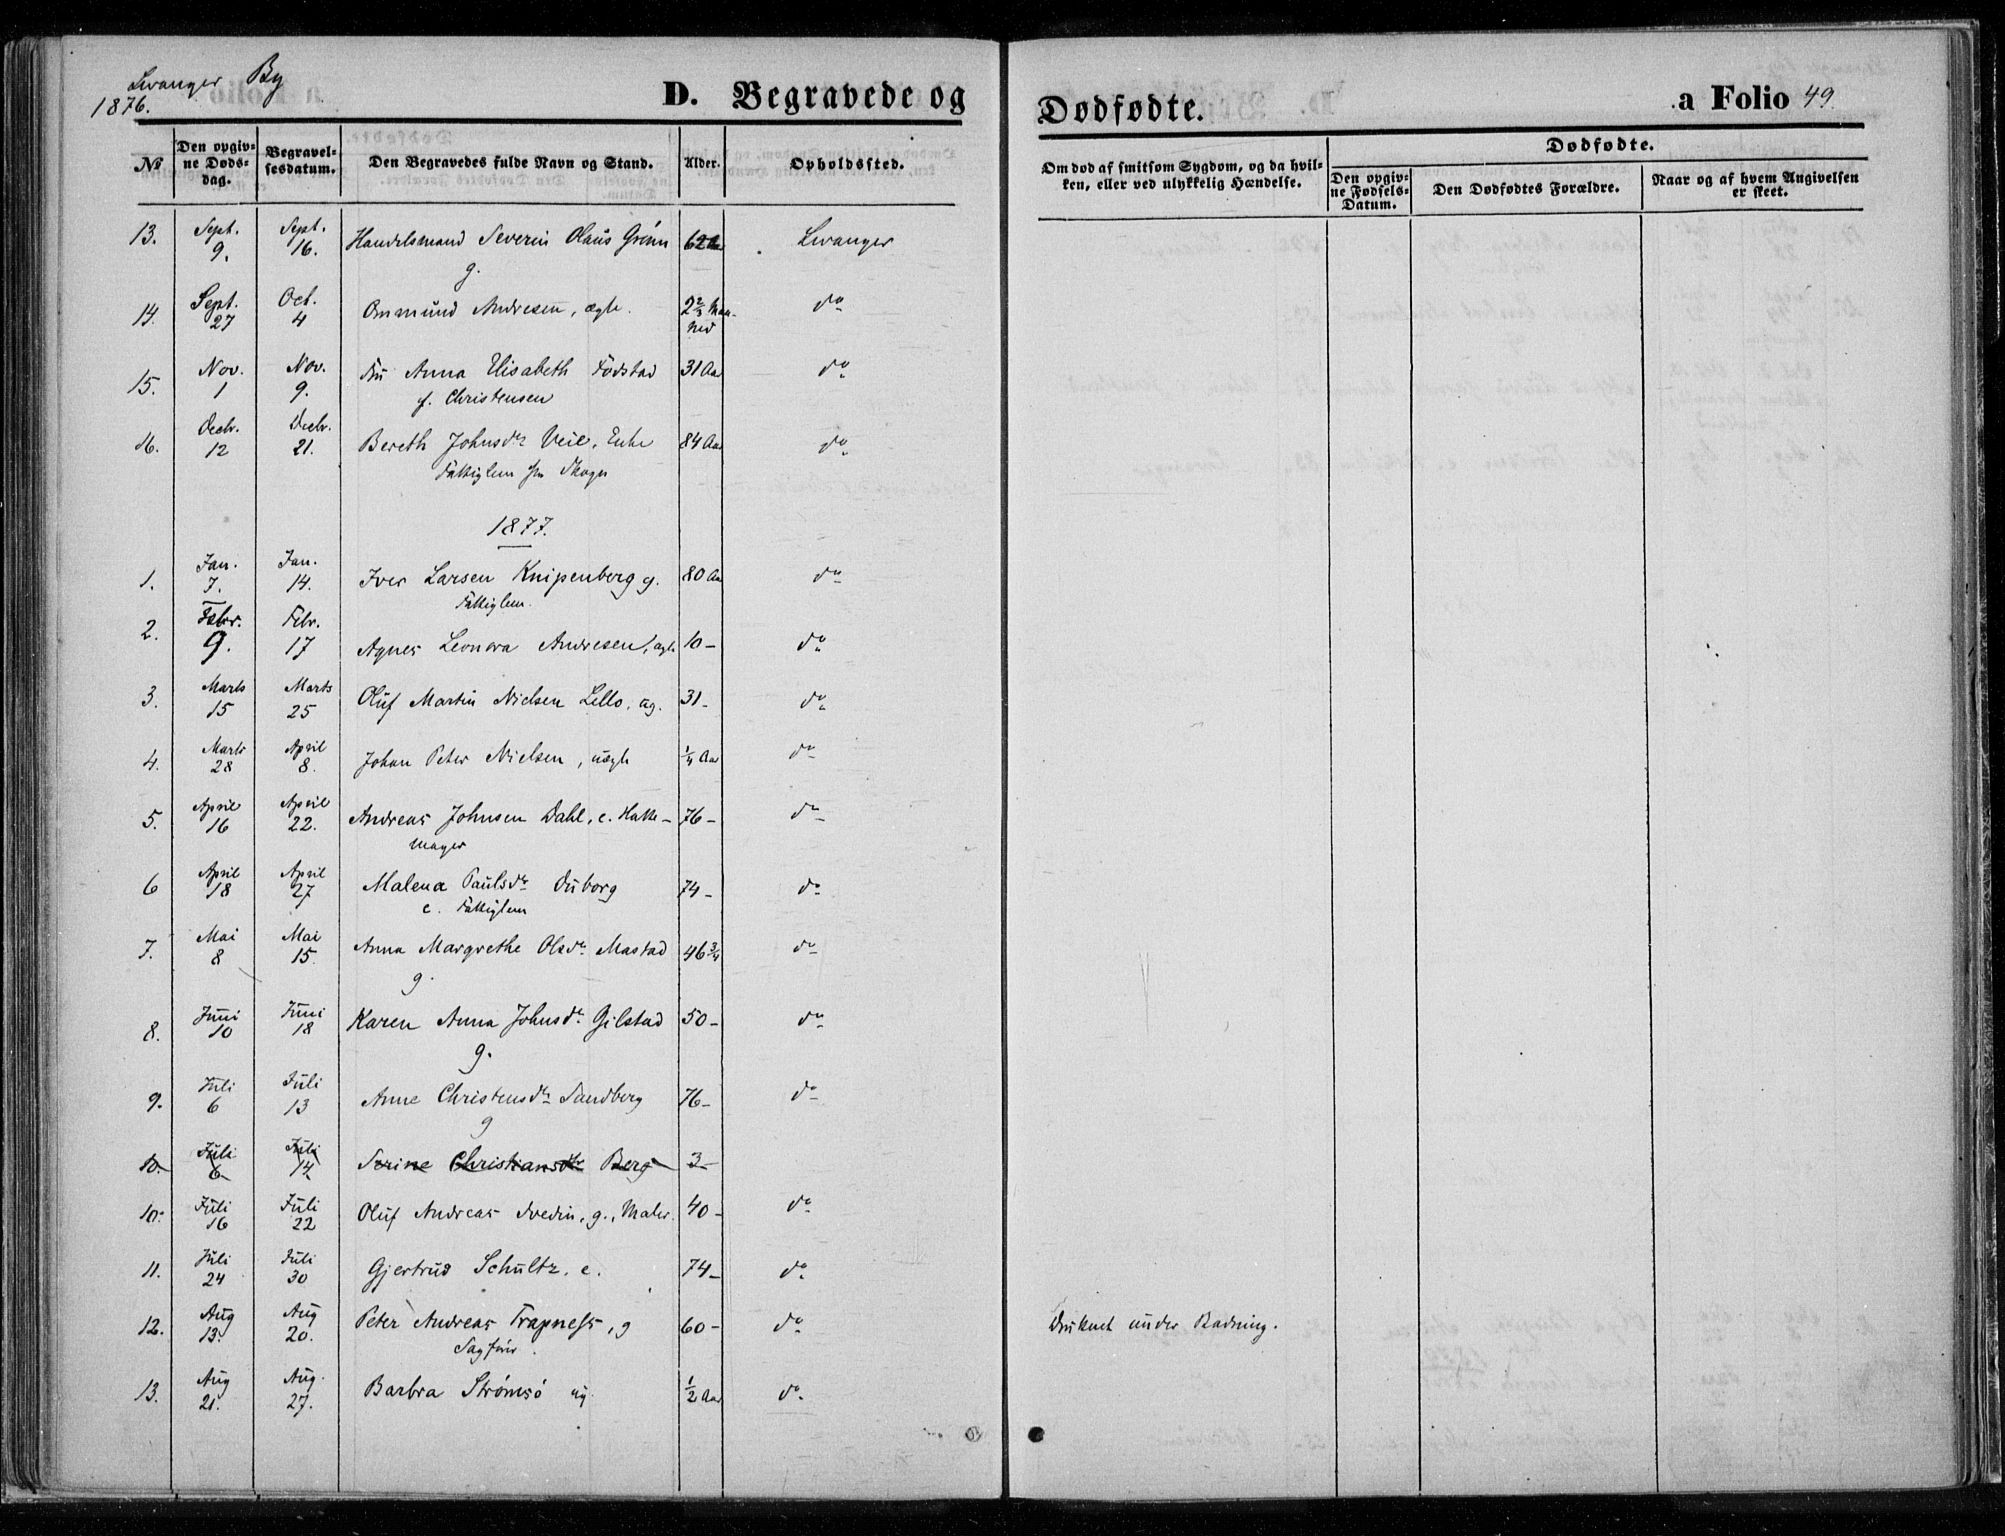 Levanger By
1876.
D. Begravede og
Dødfødte.
a Folio 49.
No
Den opgiv-
ne Døds-
dag.
Begravel-
sesdatum.
Den Begravedes fulde Navn og Stand.
Alder.
Opholdssted.
Om død af smitsom Sygdom, og da hvil-
ken, eller ved ulykkelig Hændelse.
Dødfødte.
Den opgiv-
ne Fødsels-
Datum.
Den Dødfødtes Forældre.
Naar og af hvem Angivelsen
er skeet.
13. Sept. 9. Sept. 16. Handelsmand Severin Olaus Grønn 62 Levanger
g.
14. Sept. 27 Oct. 4 Ommund Andresen, ægte. 2 2/3 Maa- do
ned
15. Nov. 1 Nov. 9. Fru Anna Elisabeth Födstad 31 Aar do
f. Christensen
16. Decbr. 12 Decbr. 21. Bereth Johnsdr Veie, Enke 84 Aar do
Fattiglem fra Skogn
1877.
1. Jan. 7. Jan. 14. Iver Larsen Knipenberg g. 80 Aar do
Fattiglem.
2. Febr. 9. Febr. 17 Agnes Leonora Andresen, ægte 10 – do
3. Marts 15 Marts 25 Oluf Martin Nielsen Lello, ug. 31 – do
4. Marts 28 April 8. Johan Peter Nielsen, uægte 1/4 Aar do
5. April 16 April 22. Andreas Johnsen Dahl, e. Hatte- 76 – do
mager
6 April 18 April 27 Malena Paulsdr Duborg 74 – do
e. Fattiglem
7. Mai 8 Mai 15. Anna Margrethe Olsdr Mastad 46 3/4 do
g.
8. Juni 10 Juni 18 Karen Anna Johnsdr Gilstad 50 – do
g.
9. Juli 6 Juli 13 Anne Christensdr Sandberg 76 – do
g
10. Juli 6 Juli 14. Serine Christiansdtr Berg 3 –
10. Juli 16 Juli 22 Oluf Andreas Svedin, g., Maler. 40 – do
11. Juli 24 Juli 30 Gjertrud Schultz, e. 74 – do
12. Aug 13. Aug 20. Peter Andreas Trapness, g 60 – do Druknet under Badning.
Sagfører
13. Aug 21. Aug. 27. Barbra Strømsö ug. 1/2 Aar do